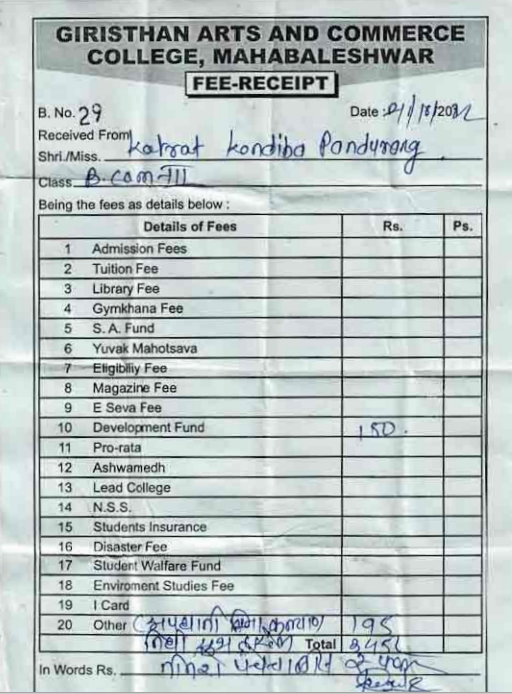 GIRISTHAN ARTS AND COMMERCE
COLLEGE, MAHABALESHWAR
FEE-RECEIPT
B. No. 29 Date :
Received From
Shri./Miss. Katrat Kondiba Pandurang
Class B.com III
Being the fees as details below :
Details of Fees Rs. Ps.
1 Admission Fees
2 Tuition Fee
3 Library Fee
4 Gymkhana Fee
5 S. A. Fund
6 Yuvak Mahotsava
7 Eligibiliy Fee
8 Magazine Fee
9 E Seva Fee
10 Development Fund 150.
11 Pro-rata
12 Ashwamedh
13 Lead College
14 N.S.S.
15 Students Insurance
16 Disaster Fee
17 Student Walfare Fund
18 Enviroment Studies Fee
19 I Card
20 Other 195
Total 345
In Words Rs.